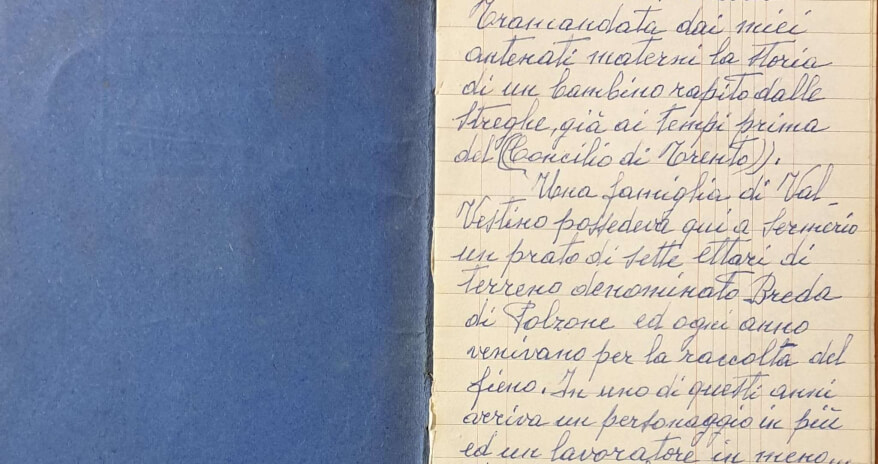 Tramandata dai miei
antenati materni la storia
di un bambino rapito dalle
Streghe, già ai tempi prima
del ((Concilio di Trento)).
Una famiglia di Val-
Vestino possedeva qui a Sermerio
un prato di sette ettari di
terreno denominato Breda
di Polzone ed ogni anno
venivano per la raccolta del
fieno. In uno di questi anni
arriva un personaggio in più
ed un lavoratore in meno...